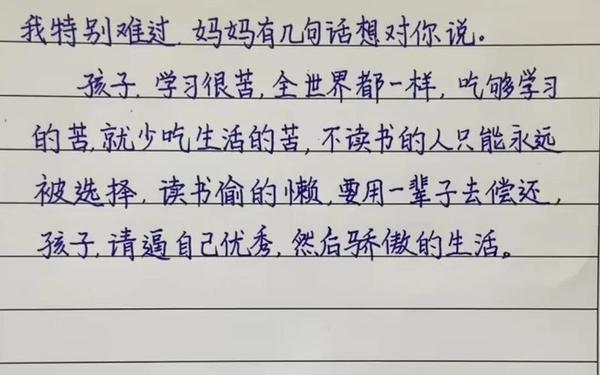 我特别难过,妈妈有几句话想对你说。
孩子,学习很苦,全世界都一样,吃够学习
的苦,就少吃生活的苦,不读书的人只能永远
被选择,读书偷的懒,要用一辈子去偿还,
孩子,请逼自己优秀,然后骄傲的生活。